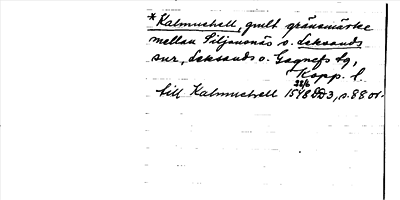 *Kalmustall, gult gränsmärke
mellan Siljansnäs o. Leksands
snr, Leksands o. Gagnefs tg,
Kopp. l.
till Kalmustall 1548 22/6 DD3, s. 88 or.